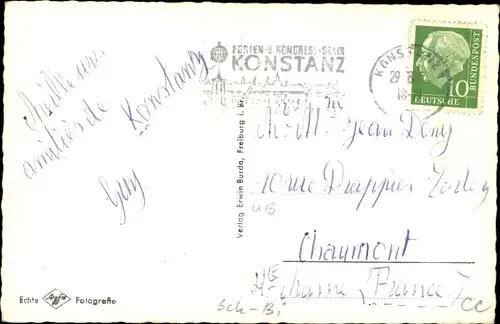 amitiés de Konstanz
Guy
FERIEN- U. KONGRESS-STADT
KONSTANZ
KONSTANZ
29
18
DEUTSCHE
BUNDESPOST
10
Verlag Erwin Burda, Freiburg i. Br.
Jean
10 rue Drappier
Chaumont
Hte Marne (France)
Echte Agfa Fotografie
Sch-Bi